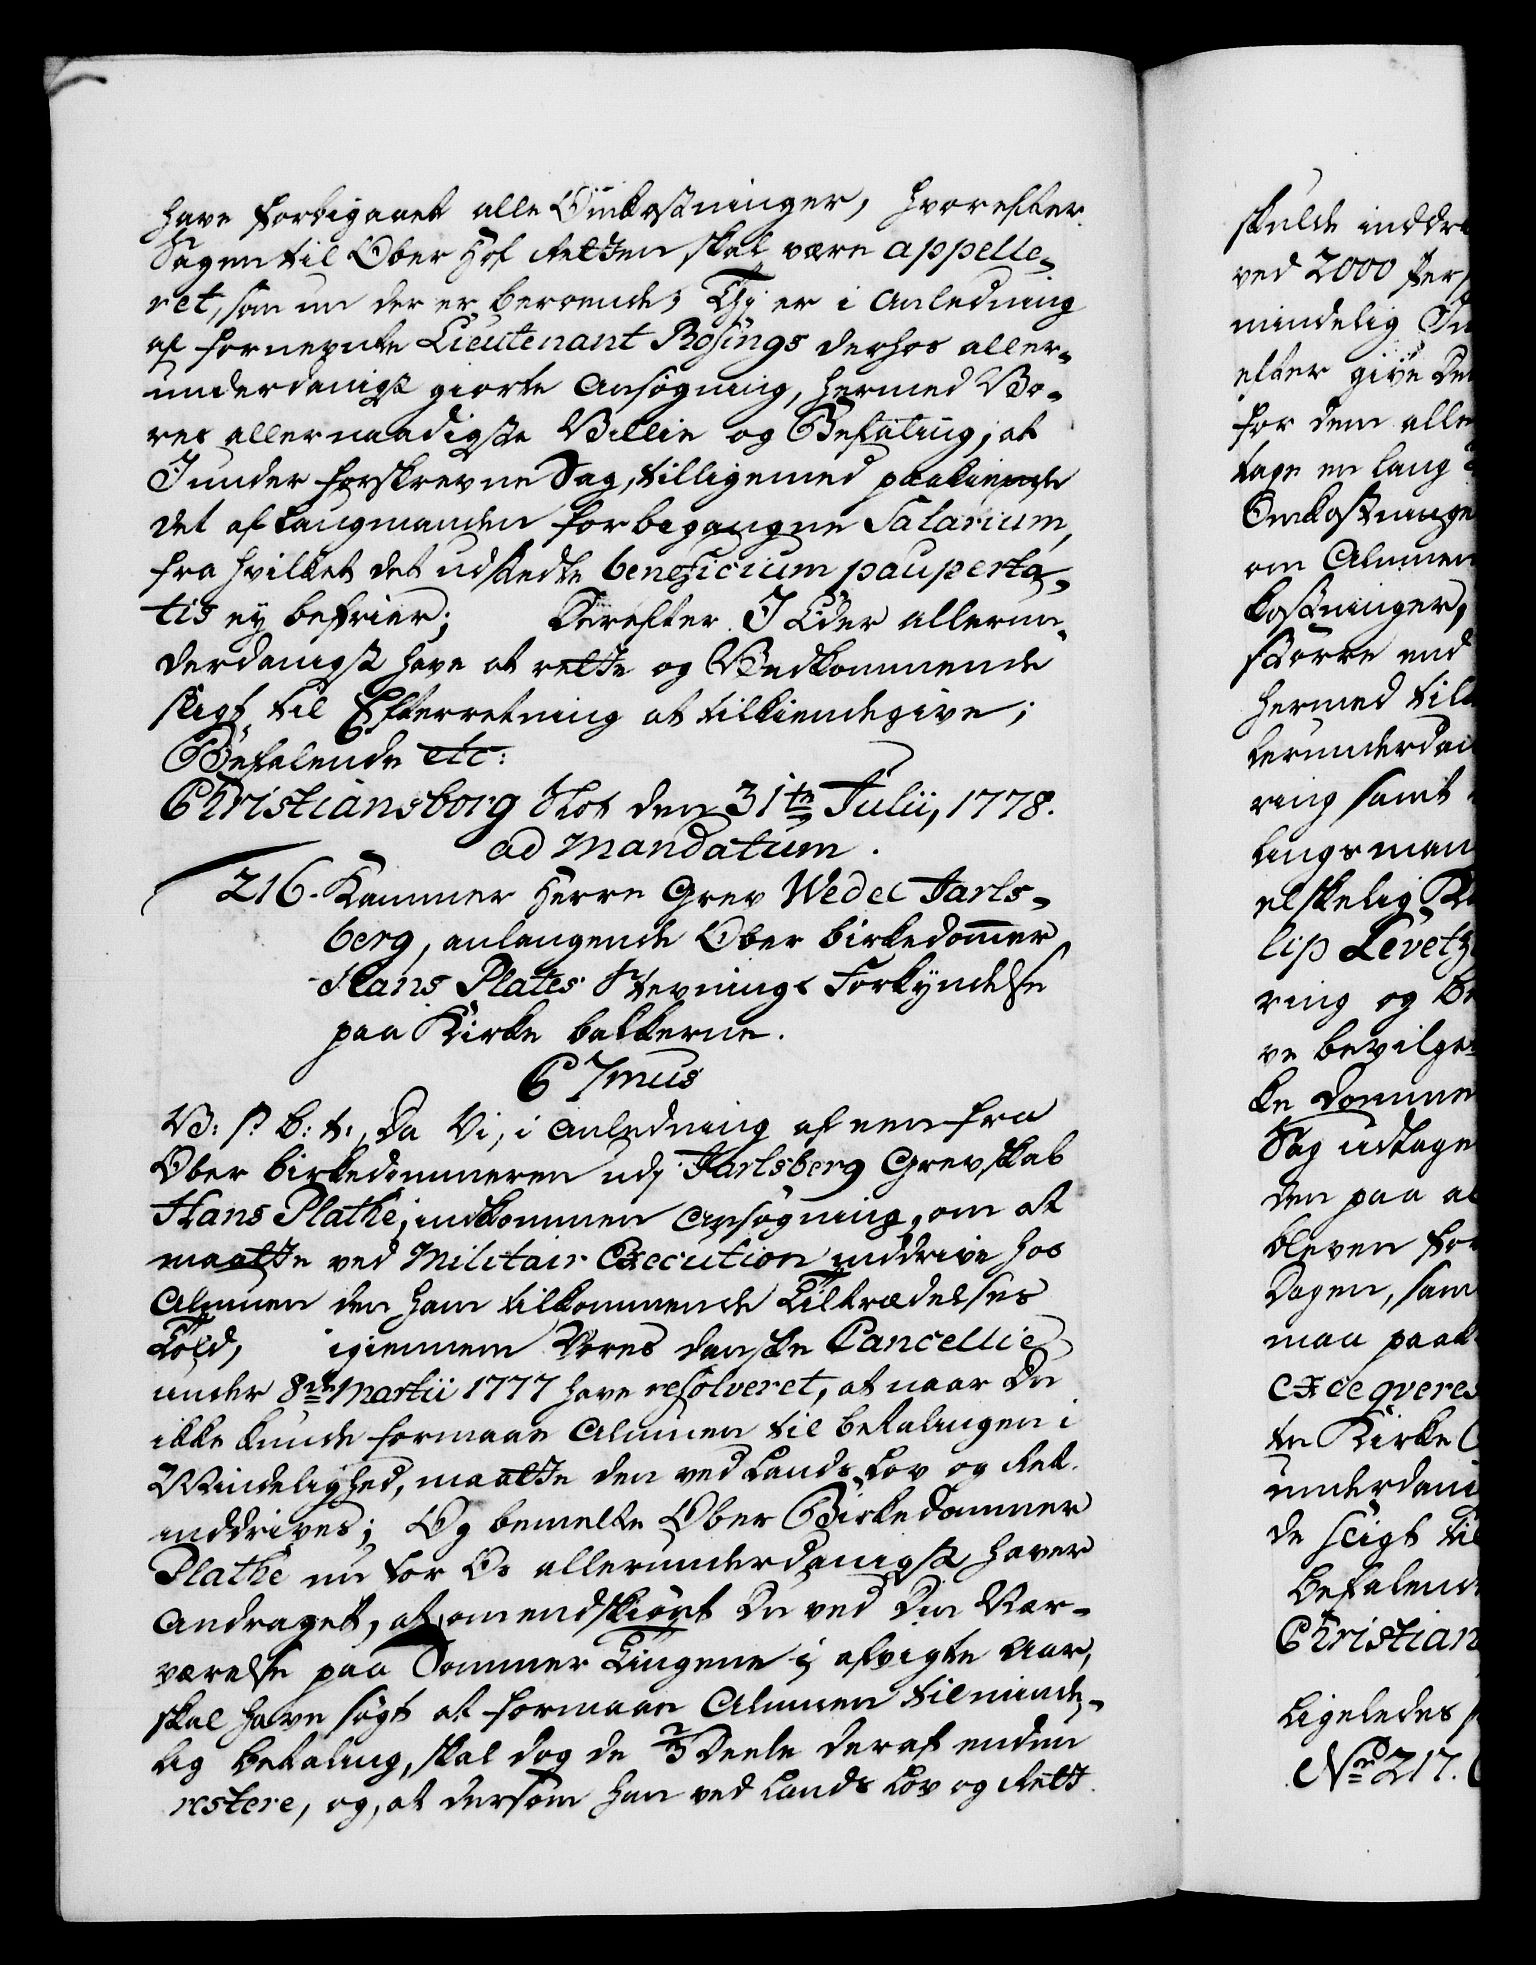 have forbigaaet alle Omkostninger, hvorefter
Sagen til Ober Hof Retten skal være appelle-
ret, som nu der er beroende; Thi er i Anledning
af fornevnte Lieutenant Rosings derhos aller-
underdanigst giorte Ansøgning, hermed Vo-
res allernaadigste Villie og Befaling, at
I under forskrevne Sag, tilligemed paakiende
det af Laugmanden forbegangne Salarium,
fra hvilket det udstedte beneficium pauperta-
tis ey befrier; Derefter I Eder allerun-
derdanigst have at rette og Vedkommende
sligt til Efterretning at tilkiendegive;
Befalende etc:
Christiansborg Slot den 31te Julii, 1778.
ad Mandatum.
216. Kammer Herre Grev Wedel Jarls-
berg, anlangende Ober birkedommer
Hans Plates Stevnings Forkyndelse
paa Kirke bakkerne.
C 7mus
V: s: b: t:, Da Vi, i Anledning af een fra
Ober birkedommeren udj Jarlsberg Grevskab
Hans Plathe, indkommen Ansøgning, om at
maatte ved Militair Execution inddrive hos
Almuen den ham tilkommende Tiltrædelses
Told, igiennem Vores danske Cancellie
under 8de Martii 1777 have resolveret, at naar Du
ikke kunde formaae Almuen til betalingen i
Mindelighed, maatte den ved Lands Lov og Ret
inddrives; Og bemelte Ober Birkedommer
Plathe nu for Os allerunderdanigst haver
Andraget, at, omendskiønt Du ved Din Nær-
værelse paa Sommer Tingene i afvigte Aar,
skal have søgt at formaae Almuen til minde-
lig betaling, skal dog de 2/3 Deele deraf endnu
restere, og, at dersom han ved Lands Lov og Rett
skulde inddri
ved 2000 Per
mindelig In
efter give De
for dem alle
tage en lang
Omkostninge
om Almuen
kostninger,
større end
hermed till
lerunderdan
ring samt
lingsman
elskelig
lip Levetz
ring og be
ve bevilge
ke domme
Sag udtage
den paa al
bleven for
Dagen, sam
maa paak
exeqveres
te Kirke
underdani
de sligt til
befalend
Christian
Ligeledes
No 217.